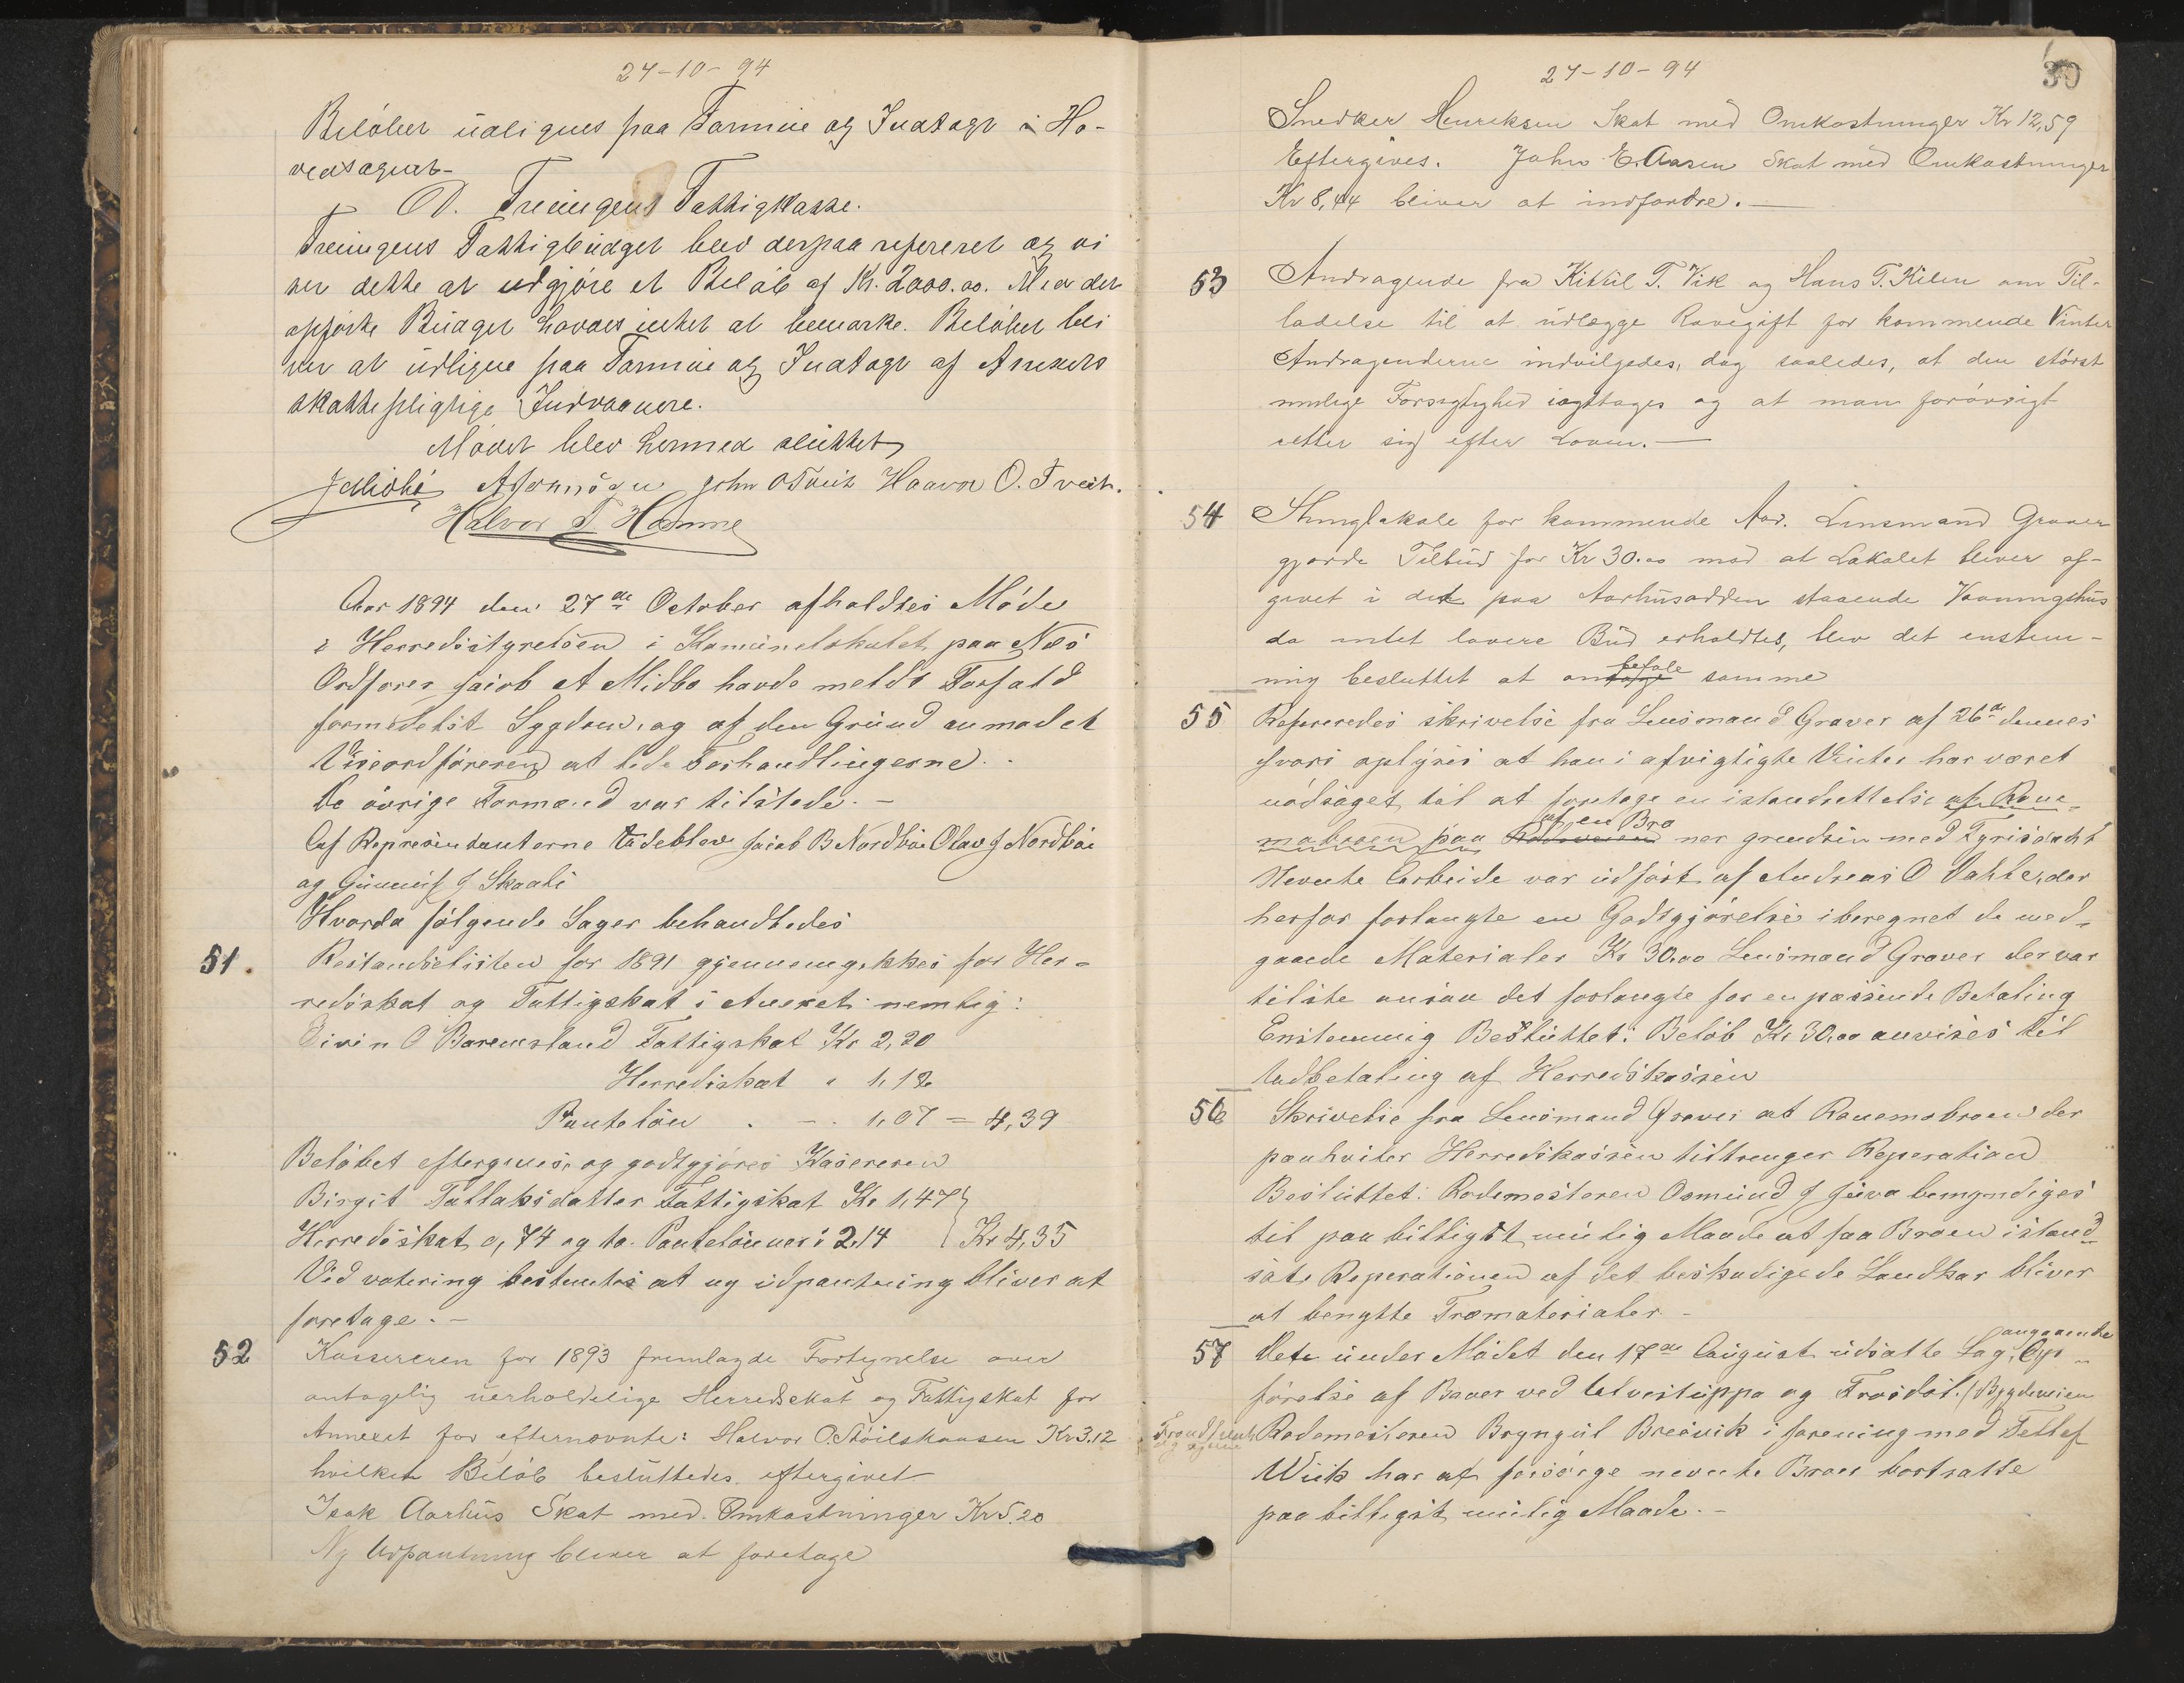 27-10-94
Beløbet udlignes paa Formue og Indtægt i Ho-
vedsognet-
D. Treungens Fattigkasse.
Treungens Fattigbudget blev derpaa refereret og vi
ser dette at udgjøre et Beløb af Kr. 2000.00. Mod det
opførte Budget havdes intet at bemærke. Beløbet bli
ver at udligne paa Formue og Indtægt af Annexets
skattepligtige Indvaanere.
Mødet blev hermed sluttet
JAMidbø John O Tveit Haavor O. Tveit.
Halvor T Hamme
Aar 1894 den 27de October afholdtes Møde
i Herredsstyrelsen i Kamunelokalet paa Næs
Ordfører Jacob A Midbø havde meldt Forfald
formedelst Sygdom, og af den Grund anmodet
Viceordføreren at lede Forhandlingerne.
De øvrige Formænd var tilstede. -
Af Repræsentanterne udeblev Jacob B Nordbøe Olav J Nordbøe
og Gunnuf J Skaali
Hvorda følgende Sager behandledes
51. Restanceliste for 1891 gjennemgikkes for Her-
redsskat og Fattigskat i Anexet nemlig:
Eivin O Baremsland Fattigskat Kr 2,20
Herredskat " 1,12
Panteløn . - . 1,07 = 4,39
Beløbet eftergives og godtgjøres Kassereren
Birgit Tallaksdatter Fattigskat Kr 1,47
Herredsskat 0,74 og to Pantelønner 2,14 } Kr 4,35
Ved votering bestemtes at ny udpantning bliver at
foretage. -
52 Kassereren for 1893 fremlagde Fortegnelse over
antagelig uerholdelige Herredsskat og Fattigskat for
Annexet for efternævnte: Halvor O. Stöilskaasen Kr 3.12
hvilket Beløb besluttedes eftergivet
Isak Aarhus Skat med Omkostninger Kr 5.20
Ny Udpantning bliver at foretage
27-10-94
30
Snedker Henriksen Skat med Omkostninger Kr 12,59
Eftergives. John E. Aasen Skat med Omkostninger
Kr 8,44 bliver at indfordre. —
53 Andragende fra Kittil T. Vik og Hans T. Kilen om Til-
ladelse til at udlægge Rævegift for kommende Vinter
Andragenderne indvilgedes, dog saaledes, at den størst
mulige Forsigtighed iagttages og at man forøvrigt
retter sig efter Loven. —
54 Thinglokale for kommende Aar. Lensmand Graver
gjorde Tilbud for Kr 30.00 mod at Lokalet bliver af-
givet i det paa Aarhusodden staaende Vaaningshus
da intet lavere Bud erholdtes, blev det enstem-
befale
mig besluttet at an samme
55 Refereredes skrivelse fra Lensmand Graver af 26de dennes
hvori oplyses at han i afvigtigte Vinter har været
nødsaget til at foretage en istandsættelse af Rone-
af en Bro
mabroen paa Rodeveien nær grendsen med Tyrisdahl
Nevnte Arbeide var udført af Andreas O Valle, der
herfor forlangte en Godtgjørelse iberegnet de med-
gaaede Materialer Kr 30.00 Lensmand Graver der var
tilste ansaa det forlangte for en passende Betaling
Enstemmig Besluttet: Beløb Kr 30,00 anvises til
Udbetaling af Herredskassen
56 Skrivelse fra Lensmand Graver at Ronemabroen der
paahviler Herredskassen tiltrenger Reperation
Besluttet: Rodemesteren Osmund J Juva bemyndiges
til paa billigst mulig Maade at faa Broen istand
sate Reperationen af det beskadigede Landkar bliver
at benytte Træmaterialer -
angaaende
57 Det under Mødet den 17de August udsatte Sag, Op-
førelse af Broer ved Ulvestuppa og Trosdøl. (Bygdeveien
Rodemesteren Bryngul Breivik i forening med Tellef
Wiik har at forsørge nevnte Broer bortsatte
paa billigst mulig Maade. -